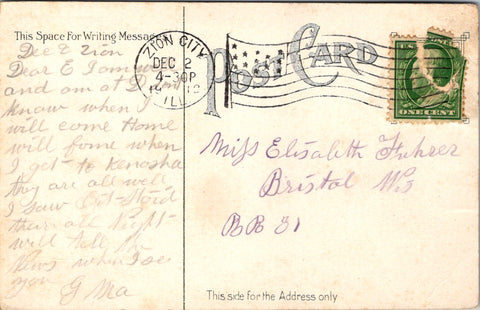 This Space For Writing Messages
Dec 2 Zion
Dear E I am
and am at
know when I
will come Home
will fone when
I get to Kenosha
they are all well
I saw
their all Right
will tell
News when I see
you
G Ma
POST CARD
ZION CITY
DEC 2
4-30P
ILL.
U.S.
ONE CENT
Miss Elisabeth Fuhrer
Bristol Wis
RR 31
This side for the Address only